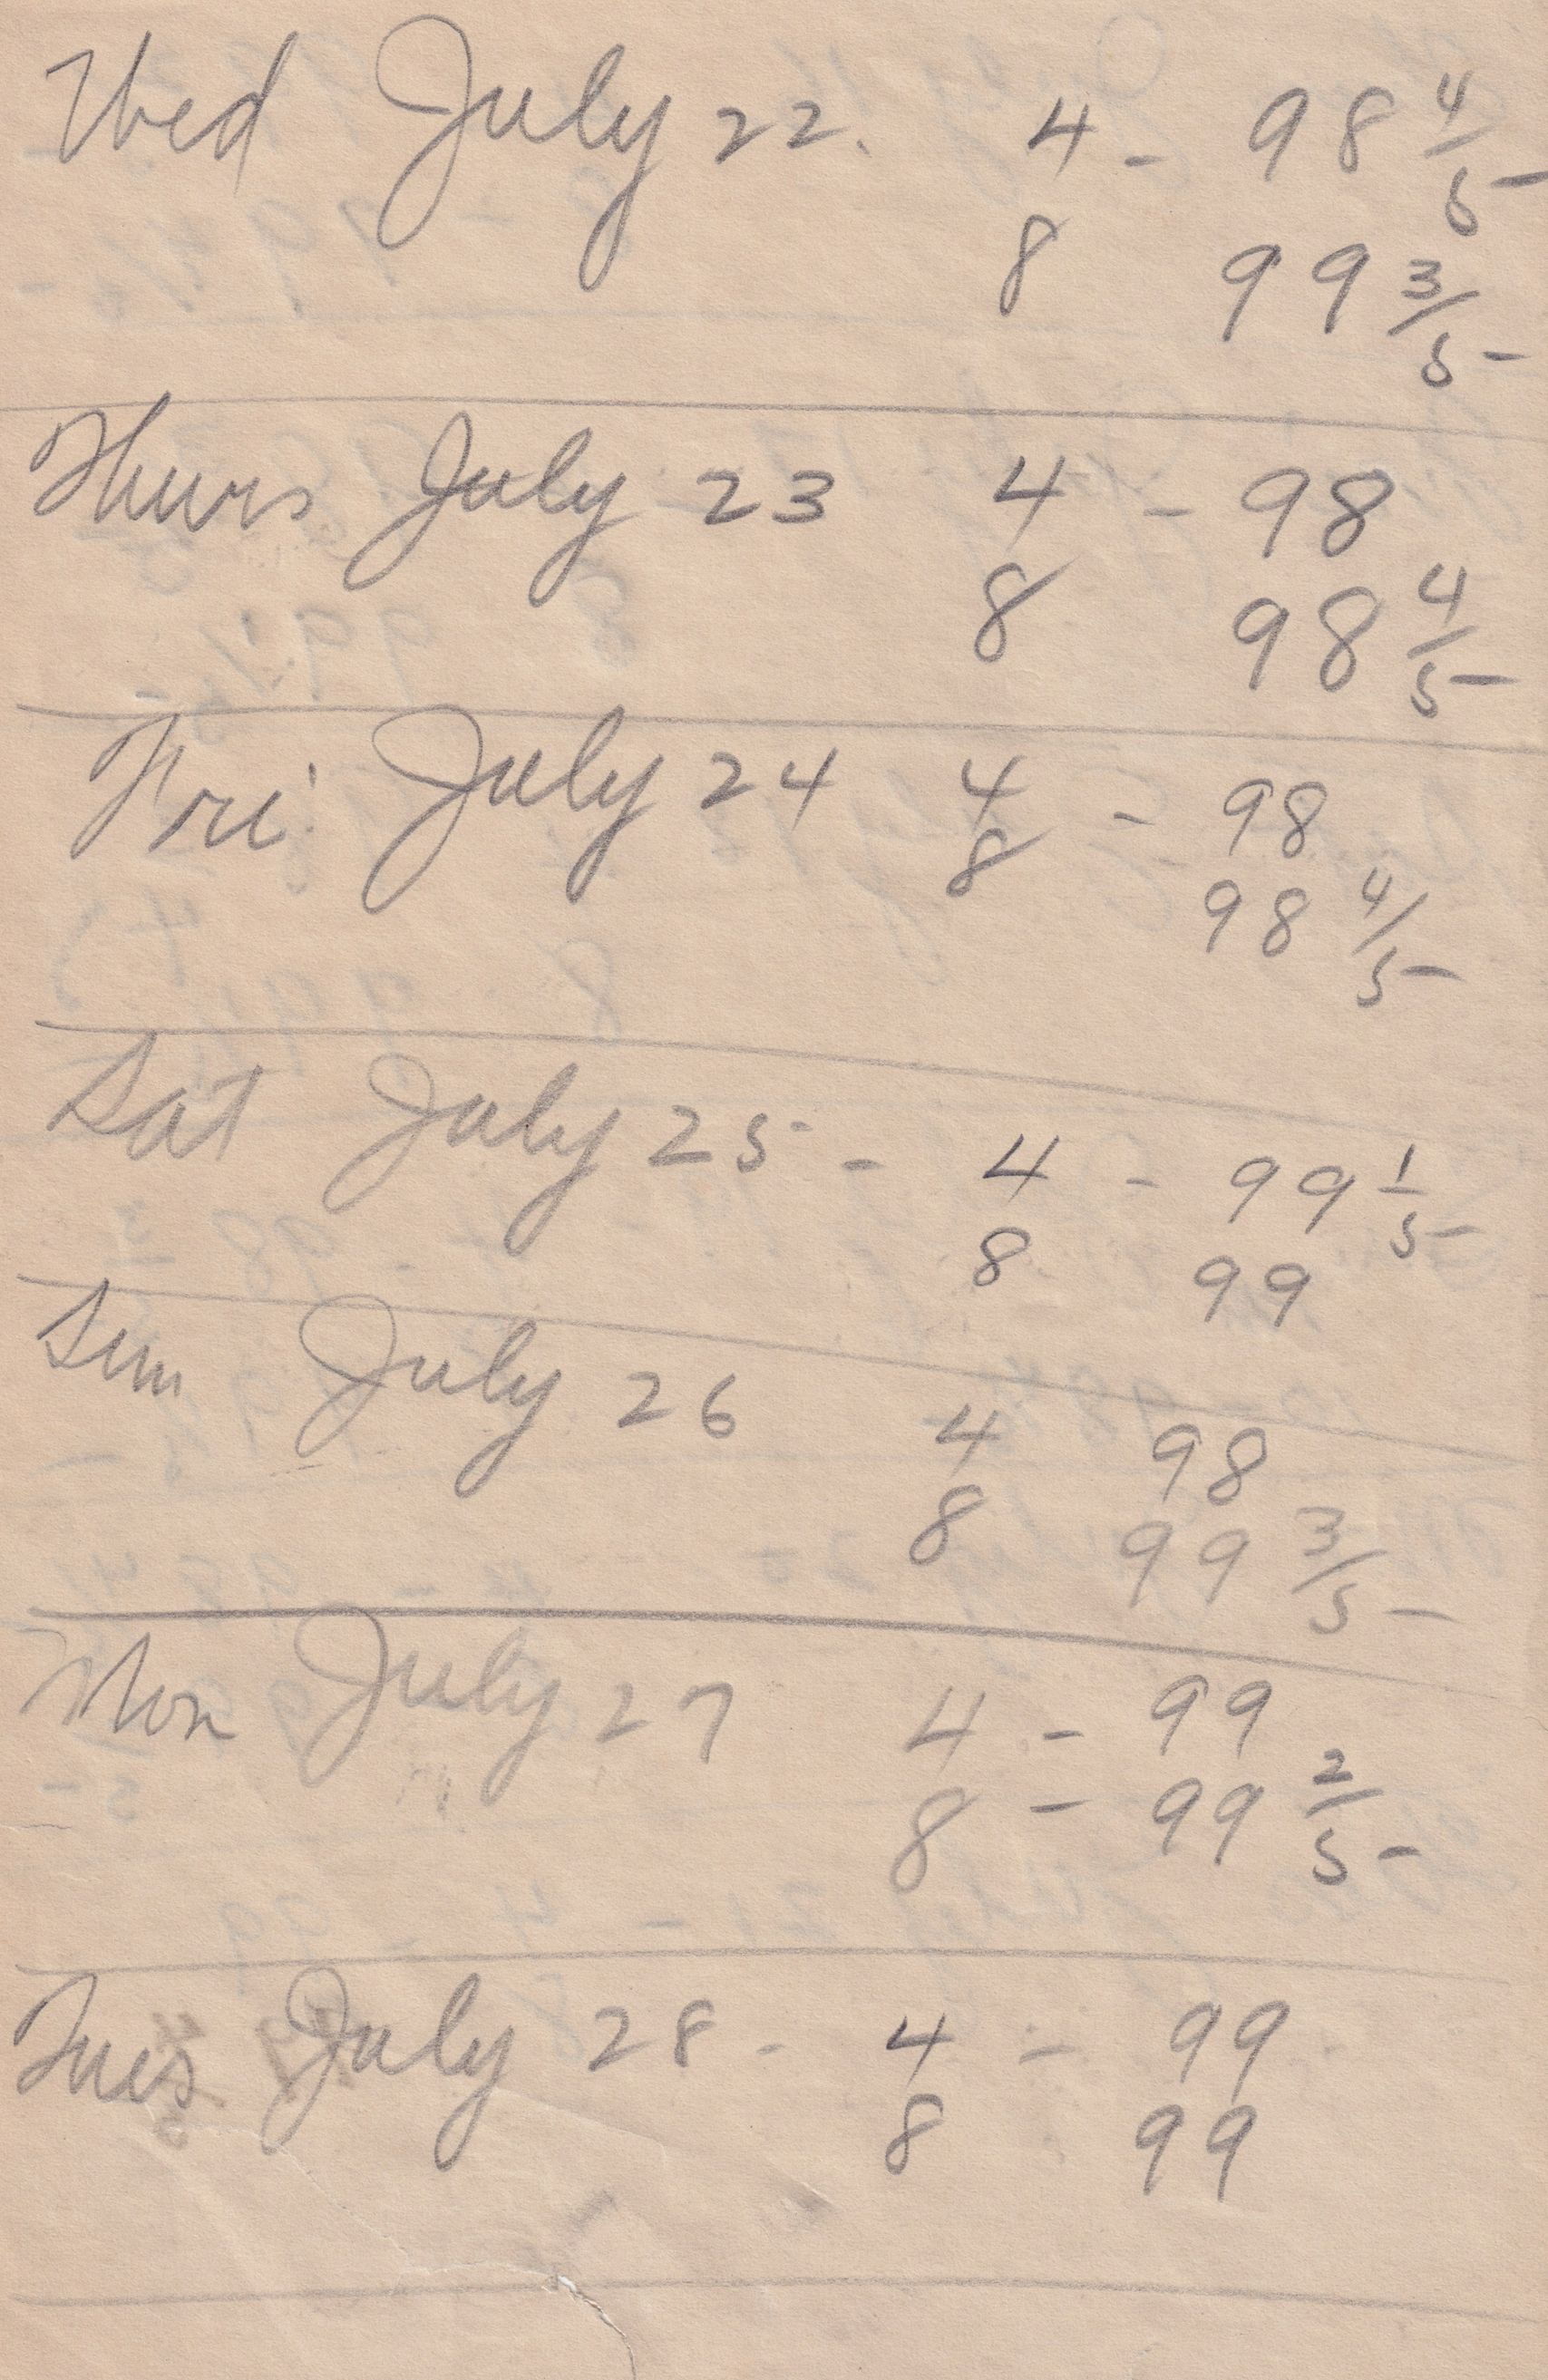 Wed July 22. 4 - 98 4/5
8 99 3/5
Thurs July 23 4 - 98
8 98 4/5
Fri July 24 4 - 98
8 98 4/5
Sat July 25 - 4 - 99 1/5
8 99
Sun July 26 4 98
8 99 3/5
Mon July 27 4 - 99
8 - 99 2/5
Tues July 28 - 4 - 99
8 99